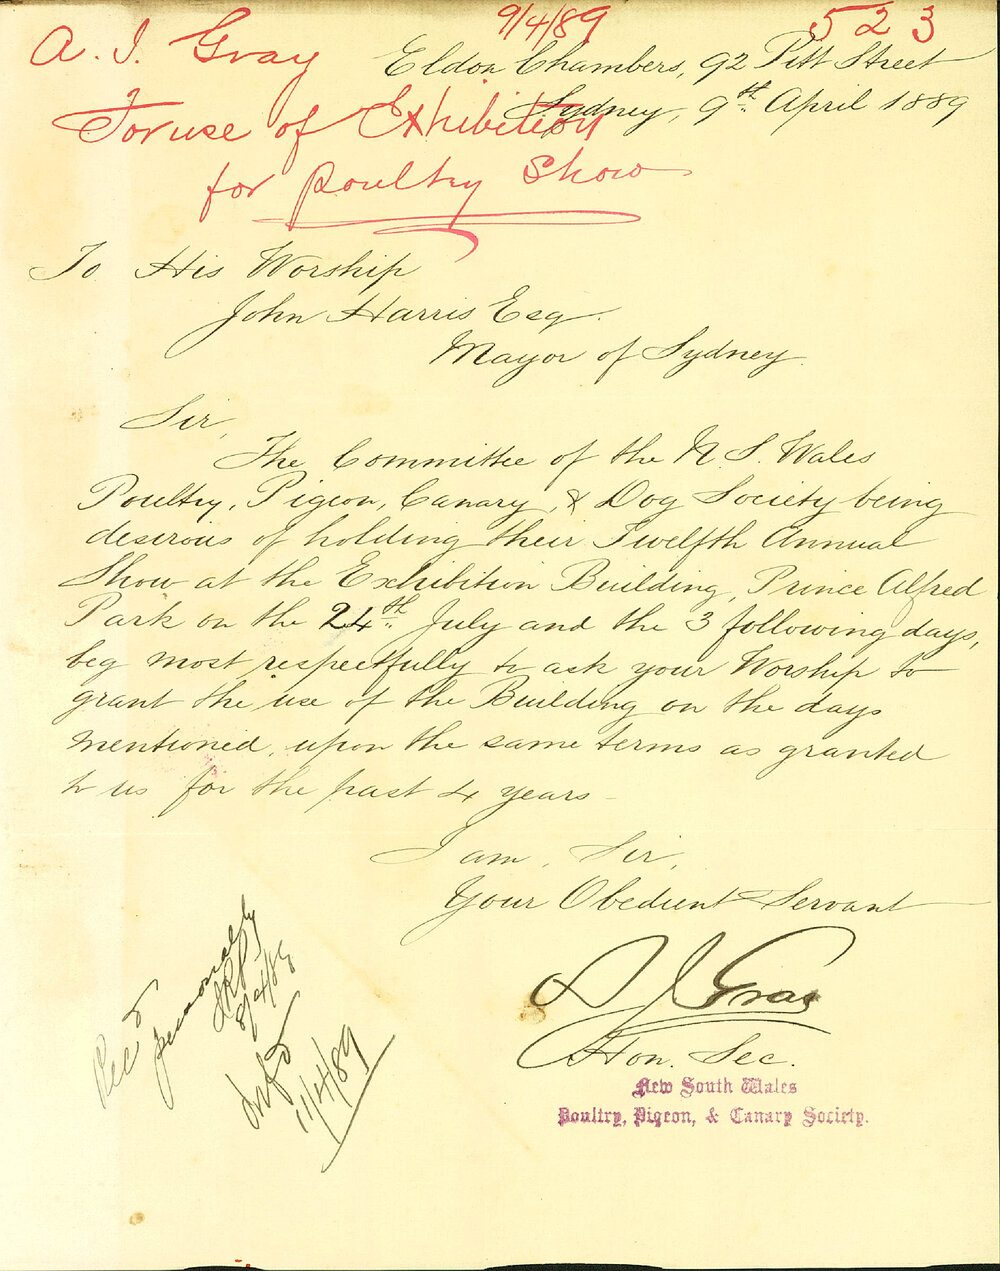 9/4/89
523
A. J. Gray
Eldon Chambers, 92 Pitt Street
Sydney, 9th April 1889
For use of Exhibition
for Poultry Show
To His Worship
John Harris Esq.
Mayor of Sydney
Sir,
The Committee of the N. S. Wales
Poultry, Pigeon, Canary, & Dog Society being
desirous of holding their Twelfth Annual
Show at the Exhibition Building, Prince Alfred
Park on the 24th July and the 3 following days,
beg most respectfully to ask your Worship to
grant the use of the Building on the days
mentioned, upon the same terms as granted
to us for the past 4 years
I am, Sir,
Your Obedient Servant
A J Gray
Hon. Sec.
New South Wales
Poultry, Pigeon, & Canary Society.
Recd
personally
8/4/89
11/4/89